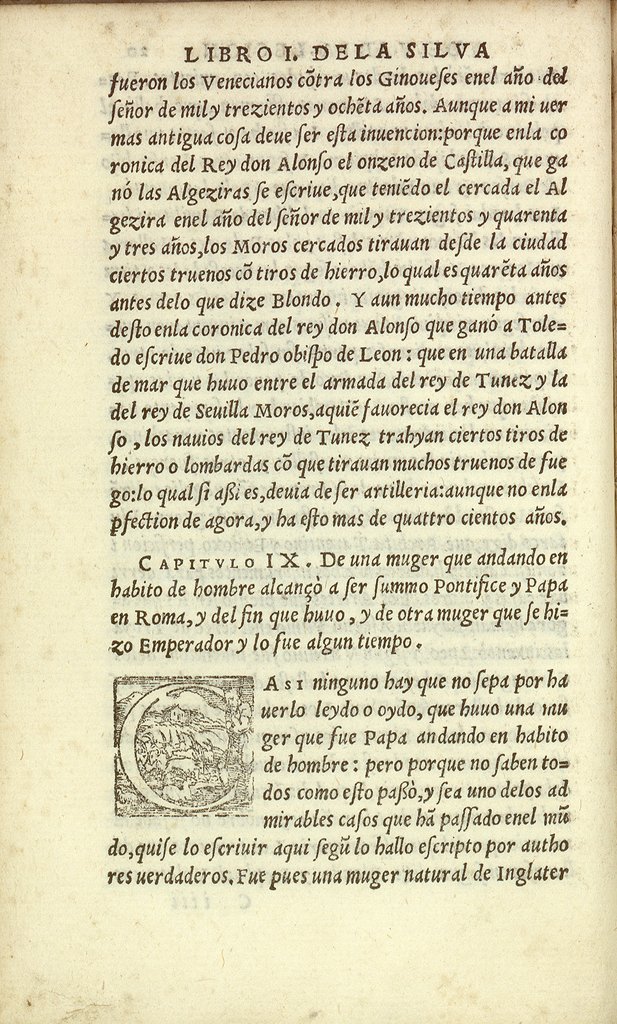 LIBRO I. DELA SILVA
fueron los Venecianos cõtra los Ginoueſes enel año del
ſeñor de mil y trezientos y ochẽta años. Aunque a mi uer
mas antigua coſa deue ſer eſta inuencion:porque enla co
ronica del Rey don Alonſo el onzeno de Caſtilla, que ga
nó las Algeziras ſe eſcriue,que teniẽdo el cercada el Al
gezira enel año del ſeñor de mil y trezientos y quarenta
y tres años,los Moros cercados tirauan deſde la ciudad
ciertos truenos cõ tiros de hierro,lo qual es quarẽta años
antes delo que dize Blondo. Y aun mucho tiempo antes
deſto enla coronica del rey don Alonſo que ganó a Tole=
do eſcriue don Pedro obiſpo de Leon: que en una batalla
de mar que huuo entre el armada del rey de Tunez y la
del rey de Seuilla Moros,aquiẽ fauorecia el rey don Alon
ſo, los nauios del rey de Tunez trahyan ciertos tiros de
hierro o lombardas cõ que tirauan muchos truenos de fue
go:lo qual ſi aßi es,deuia de ſer artilleria:aunque no enla
pfection de agora,y ha eſto mas de quattro cientos años.
CAPITVLO IX. De una muger que andando en
habito de hombre alcançò a ſer ſummo Pontifice y Papa
en Roma,y del fin que huuo, y de otra muger que ſe hi=
zo Emperador y lo fue algun tiempo.
CASI ninguno hay que no ſepa por ha
uerlo leydo o oydo, que huuo una mu
ger que fue Papa andando en habito
de hombre: pero porque no ſaben to=
dos como eſto paßò,y ſea uno delos ad
mirables caſos que hã paſſado enel mũ
do,quiſe lo eſcriuir aqui ſegũ lo hallo eſcripto por autho
res uerdaderos. Fue pues una muger natural de Inglater